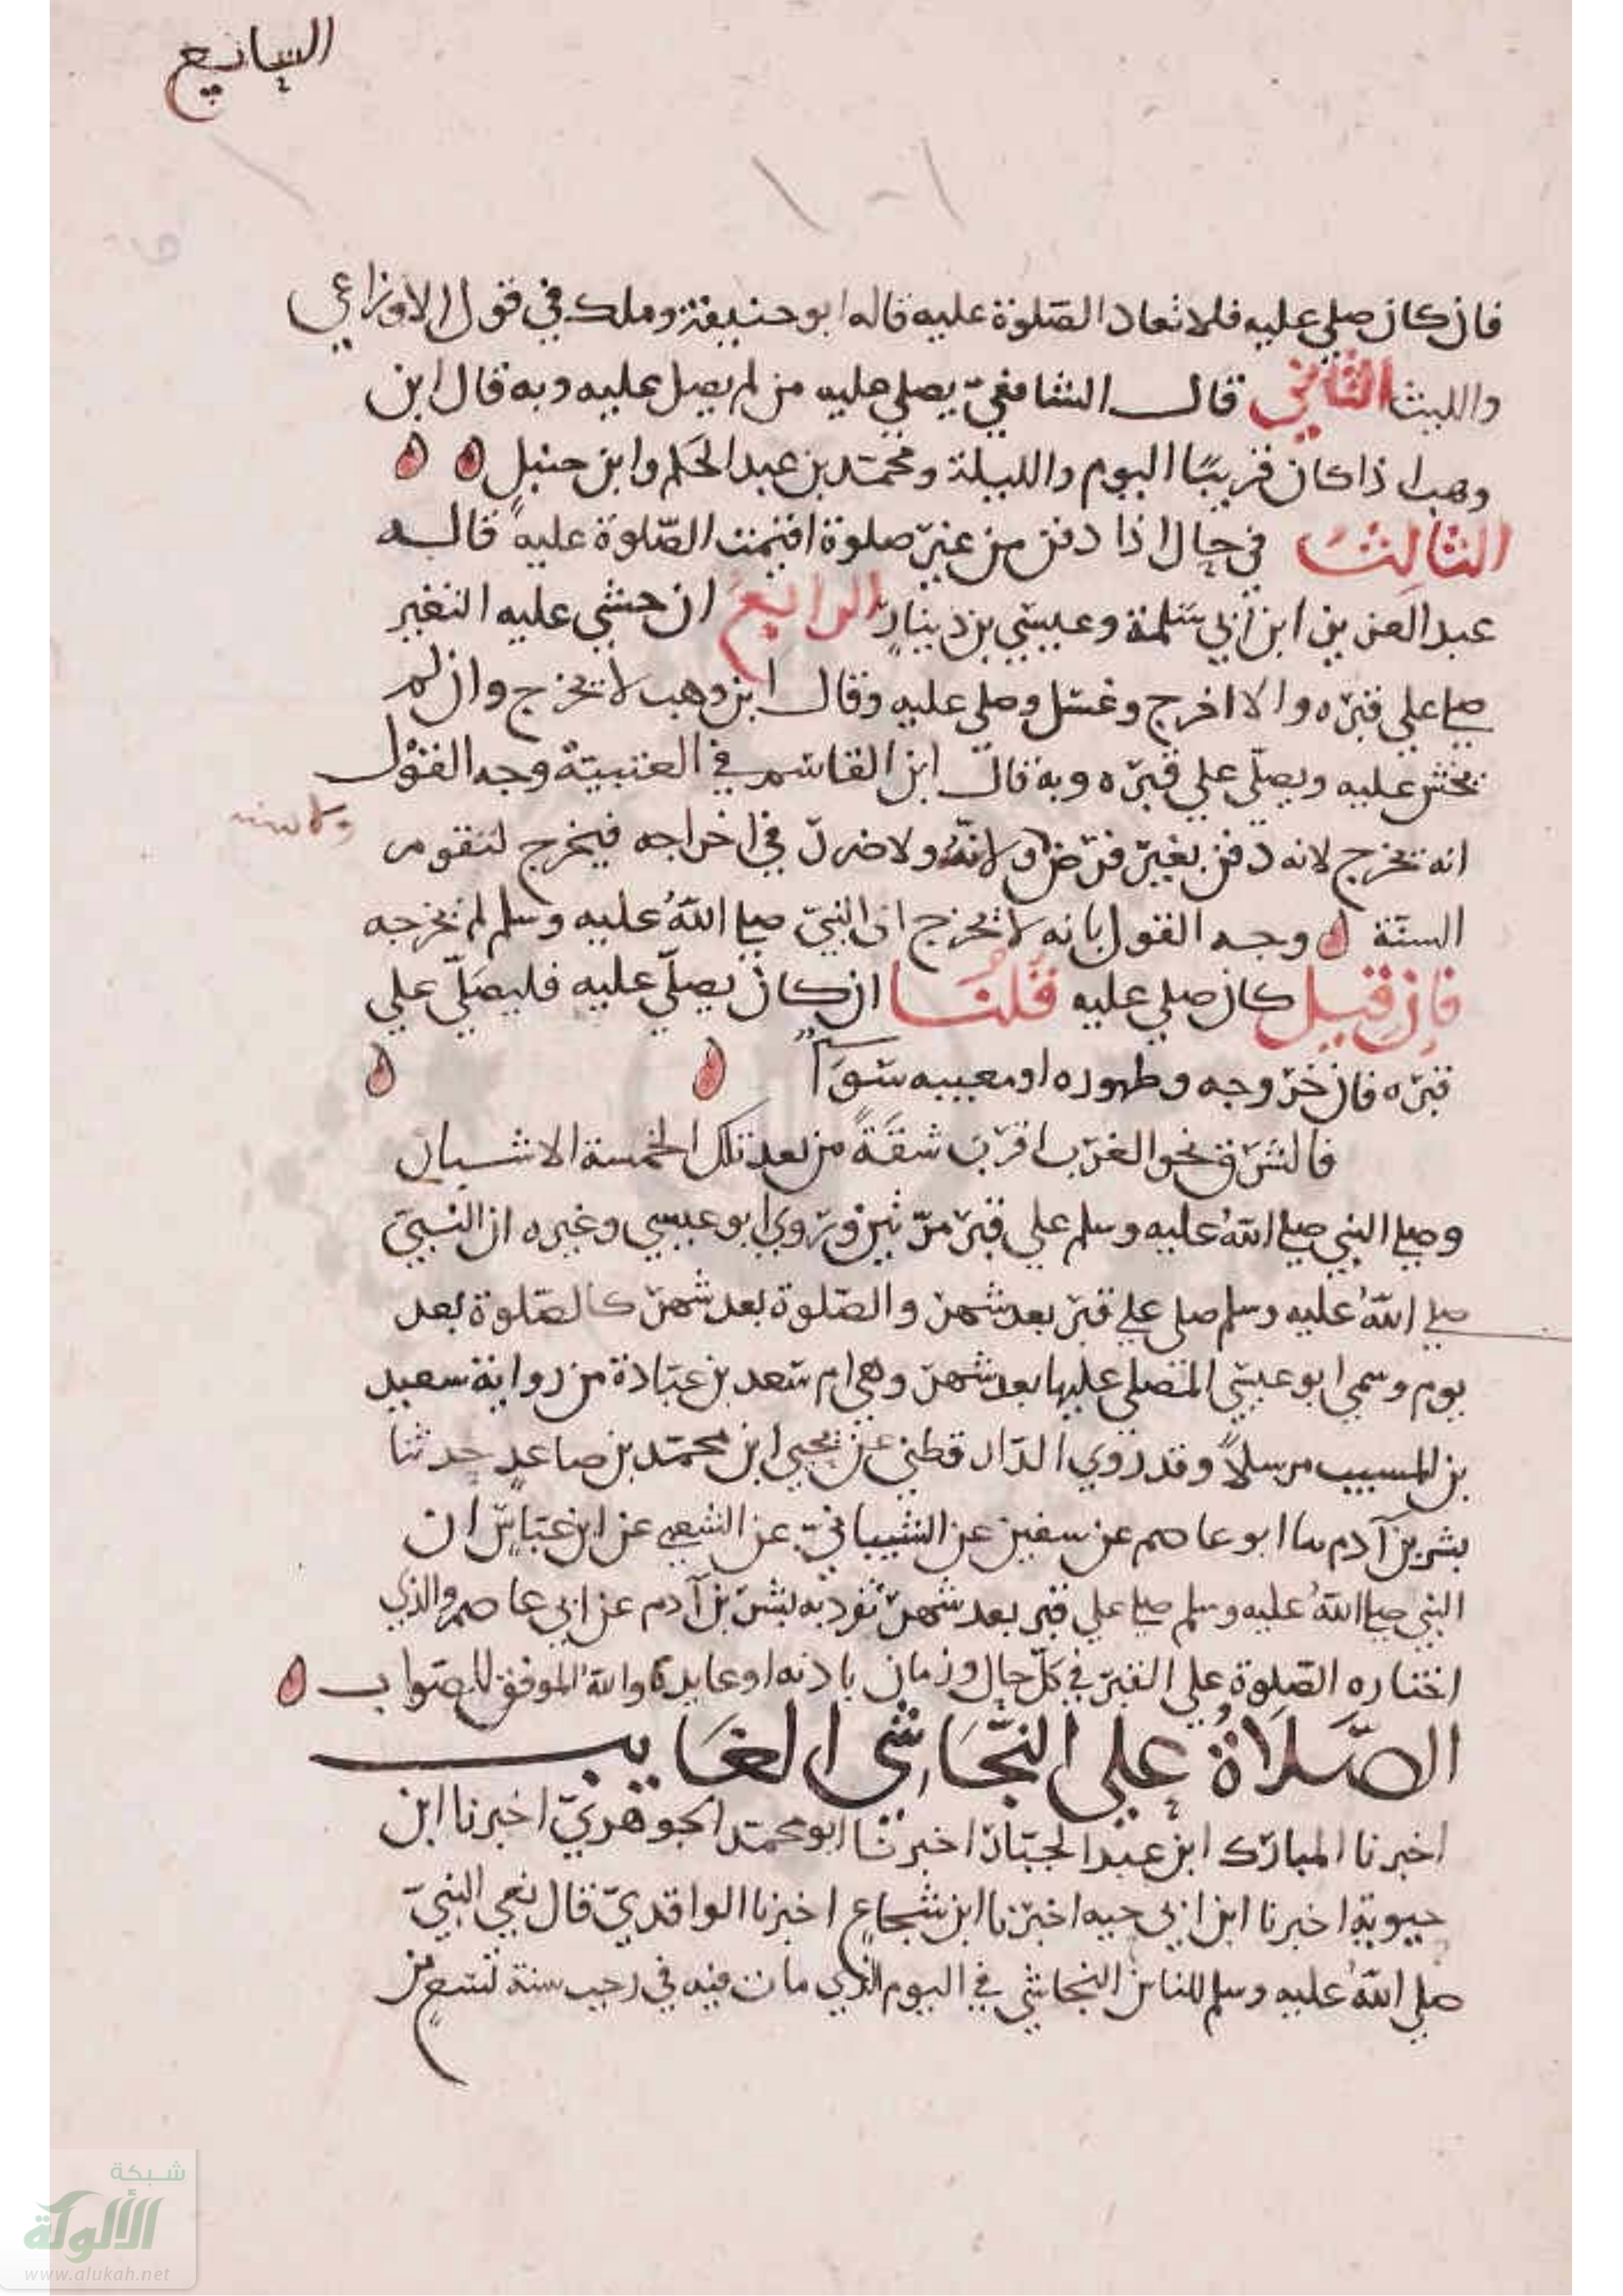 السابع
فان كان صلي عليه فلا تعاد الصّلوة عليه قاله ابو حنيفة وملك في قول الاوزاعي
والليث الثاني قال الشافعيّ يصلي عليه من لم يصل عليه وبه قال ابن
وهب اذا كان قريبًا اليوم والليلة ومحمّد بن عبد الحكم وابن حنبل
الثالث في حال اذا دفن من غير صلوة اقيمت الصّلوة عليه قاله
عبد العزيز ابن ابي سَلمة وعيسي بن دينار الرابع ان خشي عليه التغير
صلي علي قبره والا اخرج وغسل وصلي عليه وقال ابن وهب لا يخرج وان لم
يخش عليه ويصلّي علي قبره وبه قال ابن القاسم في العتبيّة وجه القول
انه يخرج لانه دفن بغير فرض ولانّه ولا ضرر في اخراجه فيخرج لتقوم
السنّة وجه القول بانه لا يخرج ان النبيّ صلي اللّهُ عليه وسلم لم يخرجه
فان قيل كان صلي عليه قُلنَا ان كان يصلّي عليه فليصَلّي علي
قبره فان خروجه وظهوره او مغيبه سَوَآ
فالشرق نحو الغرب اقرب شقَةً من بعد تلك الخمسة الاشبار
وصلي النبي صلي اللّهُ عليه وسلم علي قبر مرّتين وروي ابو عيسي وغيره ان النبيّ
صلي اللّهُ عليه وسلم صلي علي قبر بعد شهر والصّلوة بعد شهر كالصّلوة بعد
يوم وسمي ابو عيسي المتصلي عليها بعد شهر وهي ام سَعد بن عبادة من رواية سعيد
بن المسيب مرسلاً وقد روي الدّارقطني عن يحيي ابن محمّد بن صاعدٍ حدثنا
بشر بن آدم ںا ابو عاصم عن سفين عن الشيبانيّ عن الشعبي عن ابن عبّاس ان
النبي صلي اللّهُ عليه وسلم صلي علي قبر بعد شهر تفرد به بشر بن آدم عن ابي عاصم والذي
اختاره الصّلوة علي القبر في كلّ حال وزمان والله الموفق للصّواب
الصَّلَاةُ علي النجَّاشي الغَايب
اخبرنا المبارك ابن عبد الجبّار اخبرنَا ابو محمّد الجوهريّ اخبرنا ابن
حيوية اخبرنا ابن ابي حيه اخبرنا ابن شجاعٍ اخبرنا الواقديّ قال نعي النبيّ
صلي اللّهُ عليه وسلم للناس النجاشي في اليوم الذي مات فيه في رجب سنة تسعٍ من
شبكة
الألوكة
www.alukah.net